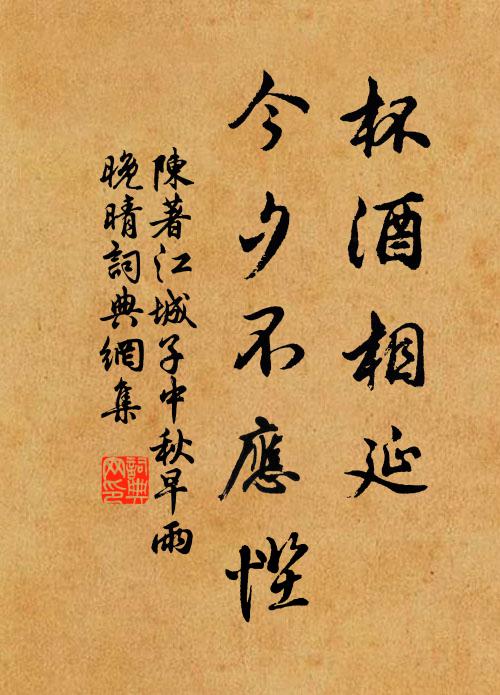 杯酒相延
今夕不應慳
陳著江城子中秋早雨
晚晴詞典網集
詞典
网印